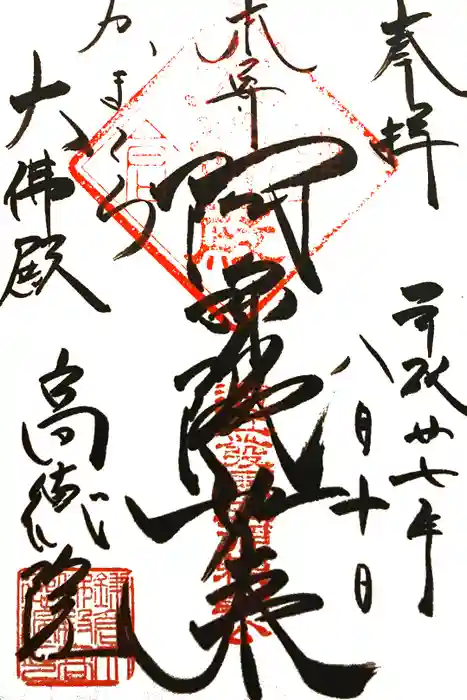 奉拝
平成廿七年
八月十日
本尊
阿弥陀如来
かまくら
大佛殿
高徳院